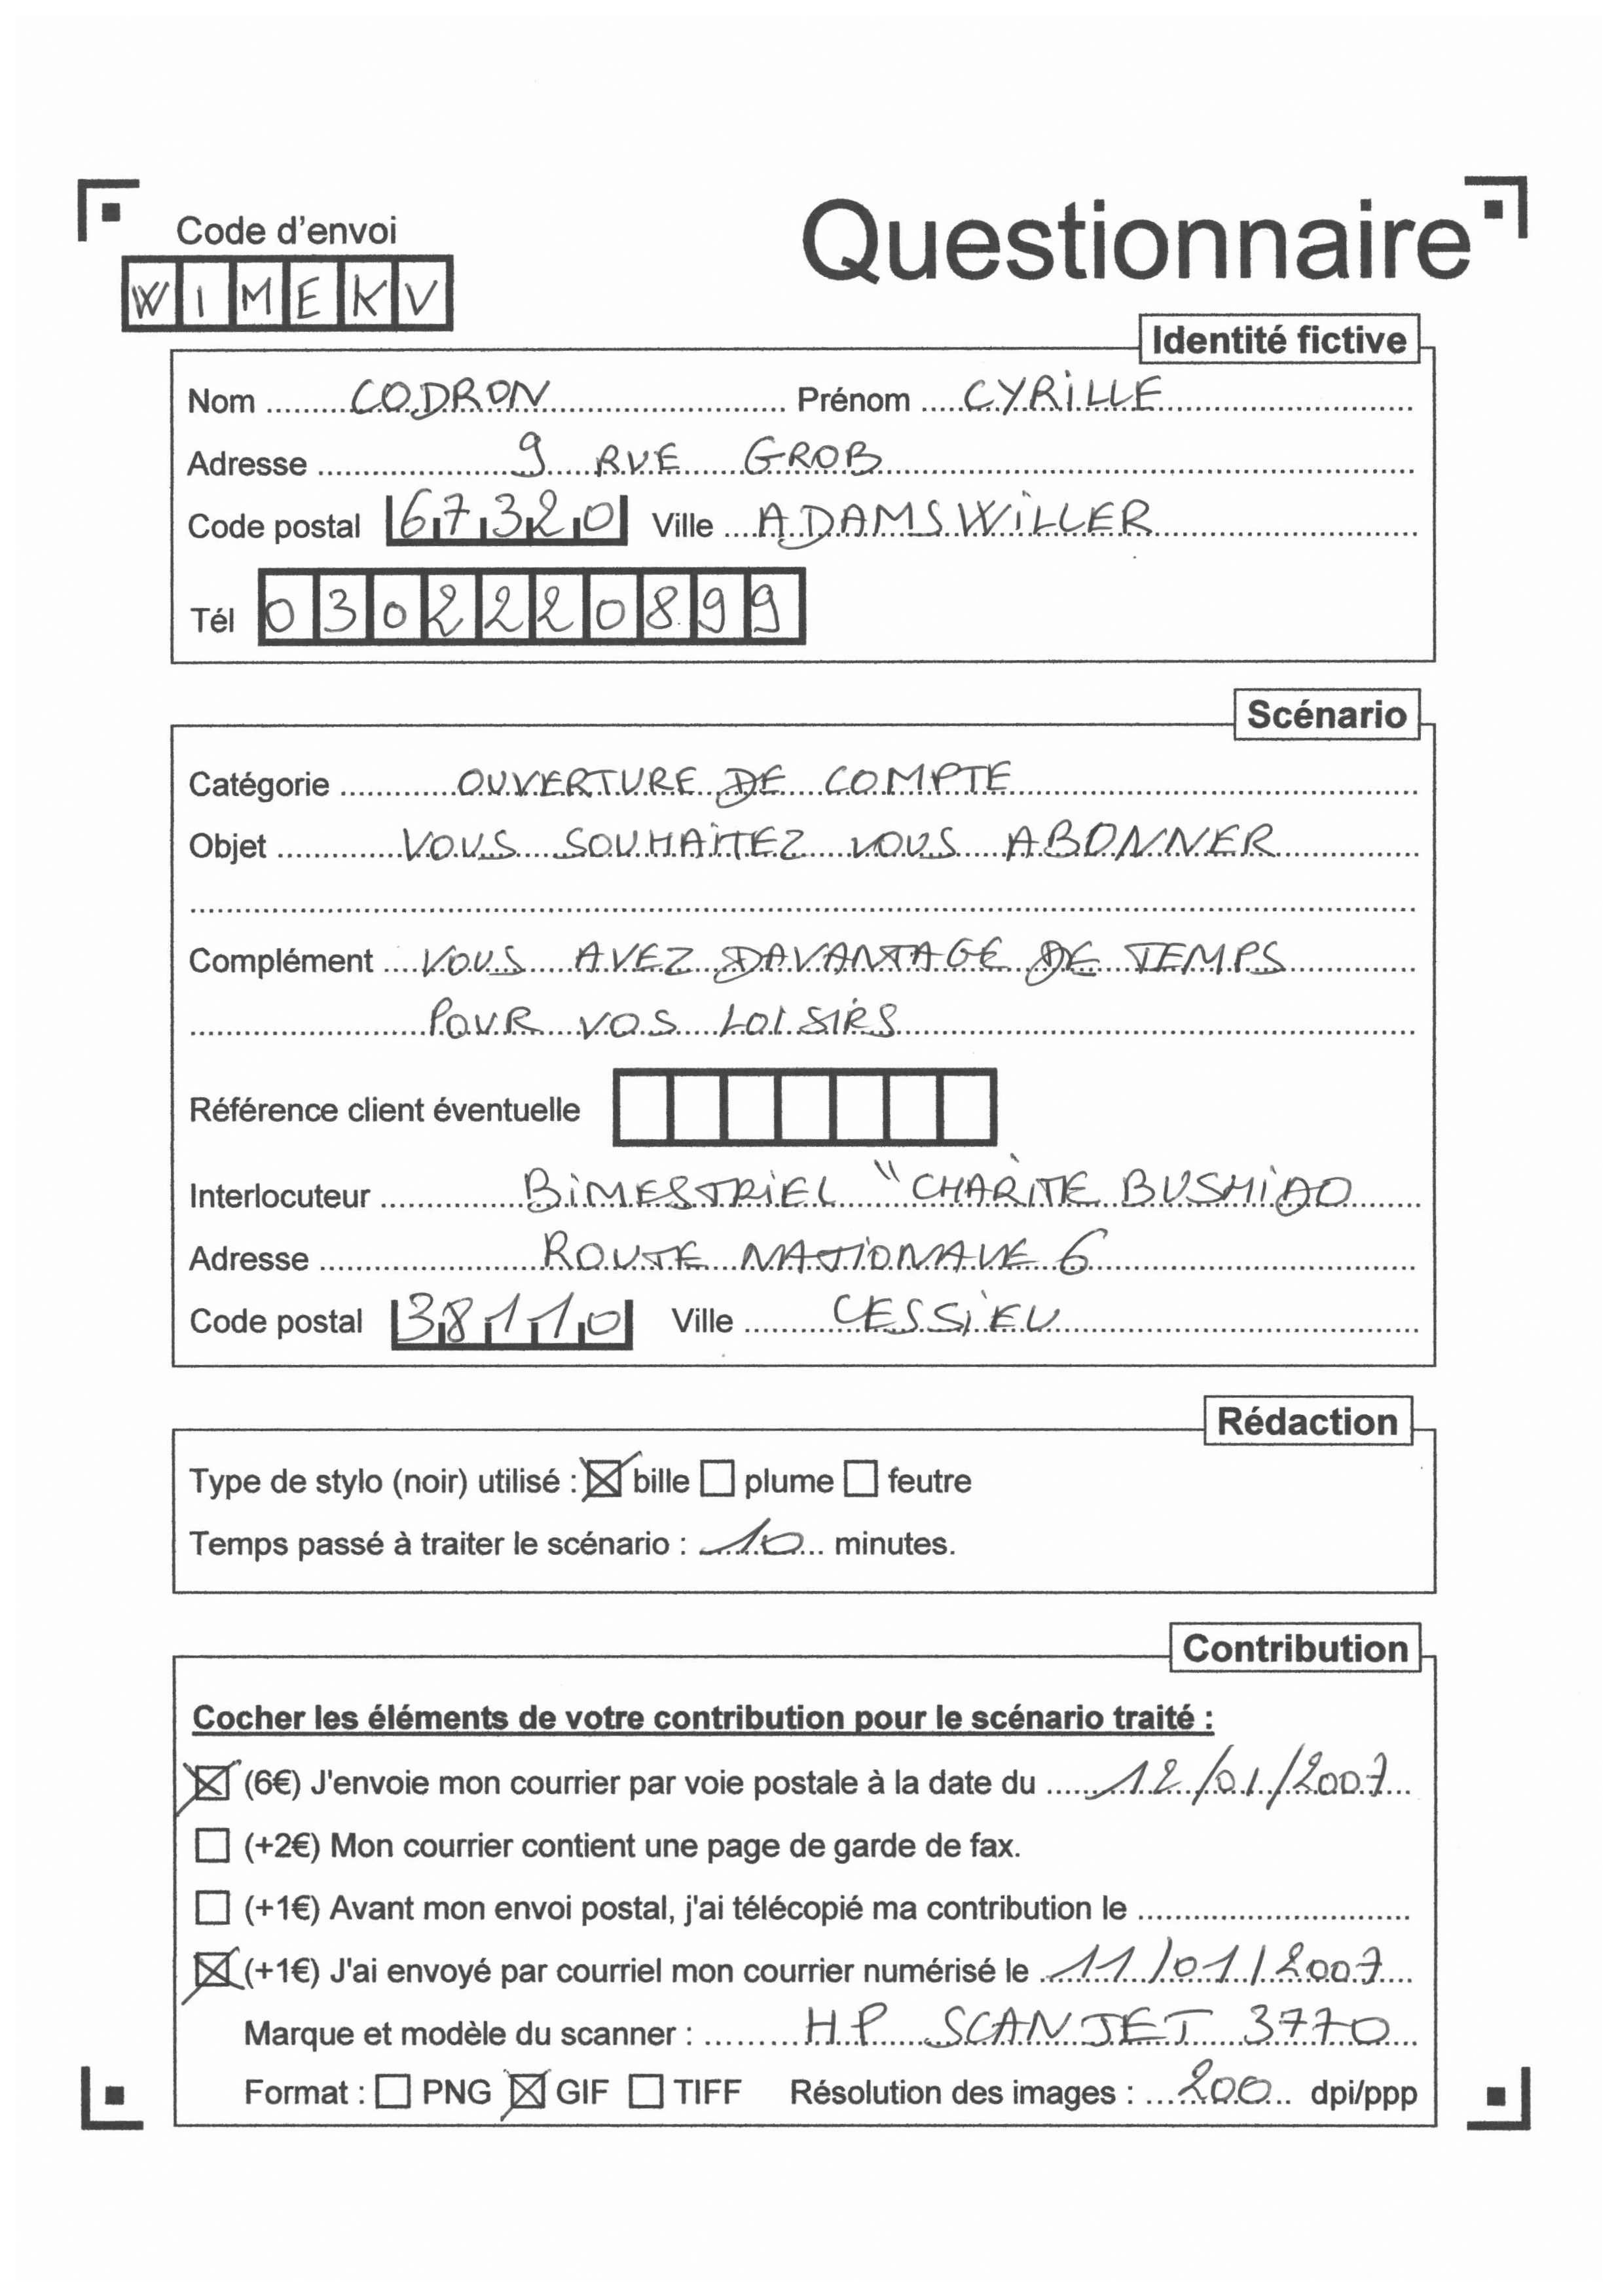 Code d'envoi
Questionnaire
WIMEKV
Identité fictive
Nom CODRON Prénom CYRILLE
Adresse 9 RUE GROB
Code postal 67320 Ville ADAMSWILLER
Tél 0302220899
Scénario
Catégorie OUVERTURE DE COMPTE
Objet VOUS SOUHAITEZ VOUS ABONNER
Complément VOUS AVEZ DAVANTAGE DE TEMPS
POUR VOS LOISIRS
Référence client éventuelle
Interlocuteur BIMESTRIEL "CHARITE BUSHIDO
Adresse ROUTE NATIONALE 6
Code postal 38110 Ville CESSIEU
Rédaction
Type de stylo (noir) utilisé : ☒ bille ☐ plume ☐ feutre
Temps passé à traiter le scénario : 10 minutes.
Contribution
Cocher les éléments de votre contribution pour le scénario traité :
☒ (6€) J'envoie mon courrier par voie postale à la date du 12/01/2007
☐ (+2€) Mon courrier contient une page de garde de fax.
☐ (+1€) Avant mon envoi postal, j'ai télécopié ma contribution le
☒ (+1€) J'ai envoyé par courriel mon courrier numérisé le 11/01/2007
Marque et modèle du scanner : HP SCANJET 3770
Format : ☐ PNG ☒ GIF ☐ TIFF Résolution des images : 200 dpi/ppp